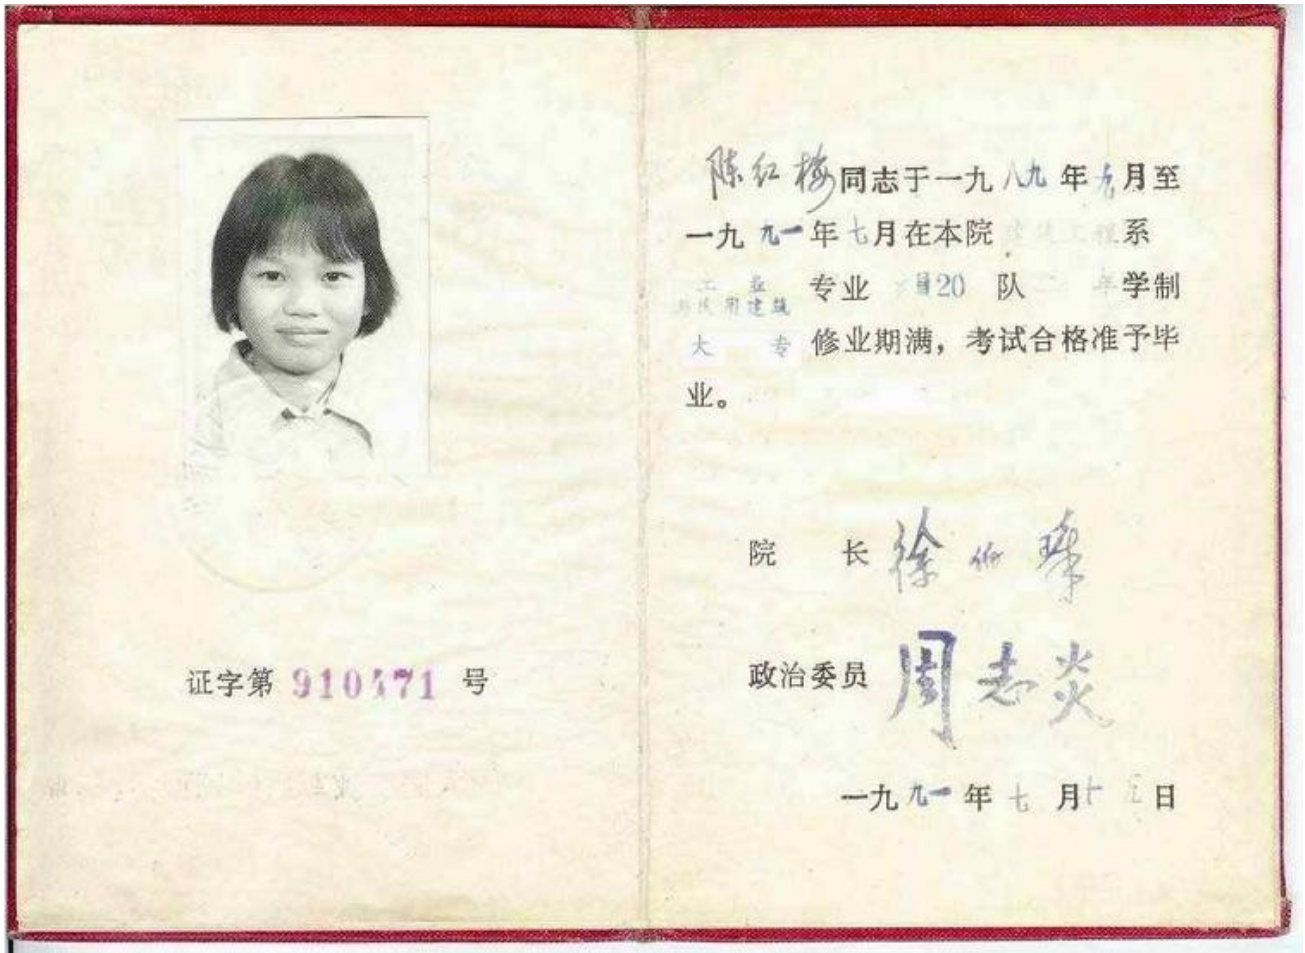 证字第 910471 号
陈红梅同志于一九八九年九月至
一九九一年七月在本院建筑工程系
工业
与民用建筑 专业 20 队 二年学制
大专 修业期满，考试合格准予毕
业。
院长 徐
政治委员 周志炎
一九九一年七月十五日